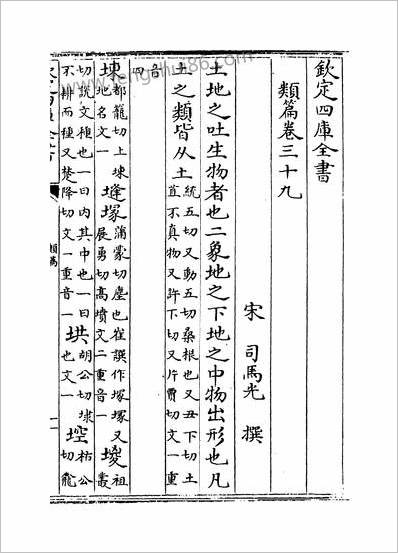 欽定四庫全書
類篇卷三十九
宋 司馬光 撰
土地之吐生物者也二象地之下地之中物出形也凡
土之類皆从土統五切又動五切桑根也又丑下切土
苴不真物又許下切又片賈切文一重
音四
堜都籠切上堜
地名文一塳塚蒲蒙切塵也崔譔作塚塚又
展勇切高墳文二重音一堫祖叢
切說文種也一曰內其中也一曰
不耕而種又楚降切文一重音一㙁胡公切㙁
也文一埪枯公
切龕
類篇